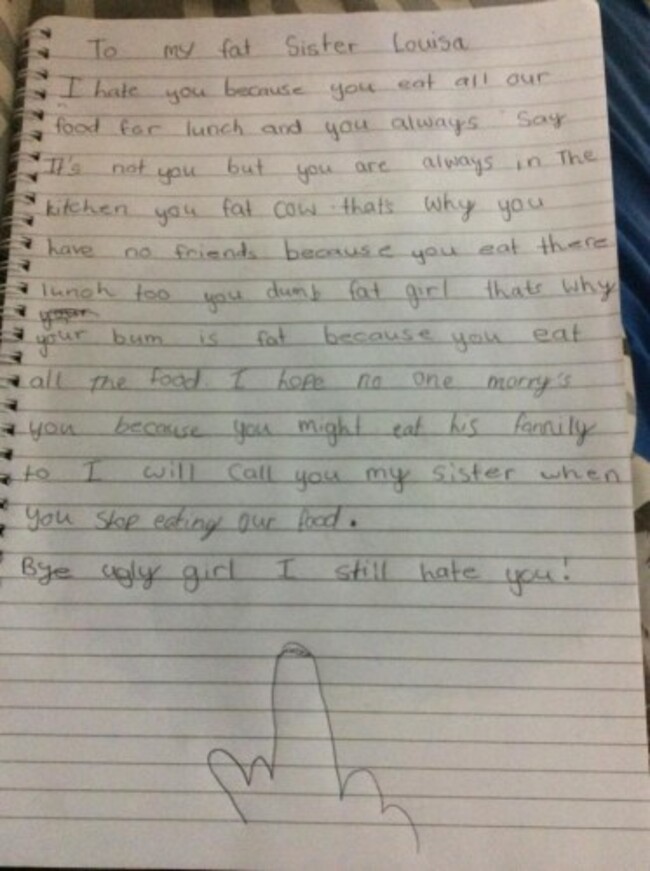 To my fat Sister Louisa
I hate you because you eat all our
food for lunch and you always say
It's not you but you are always in The
kitchen you fat cow. thats why you
have no friends because you eat there
lunch too you dumb fat girl thats why
your bum is fat because you eat
all the food. I hope no one marry's
you because you might eat his family
to I will call you my sister when
you stop eating our food.
Bye ugly girl I still hate you!